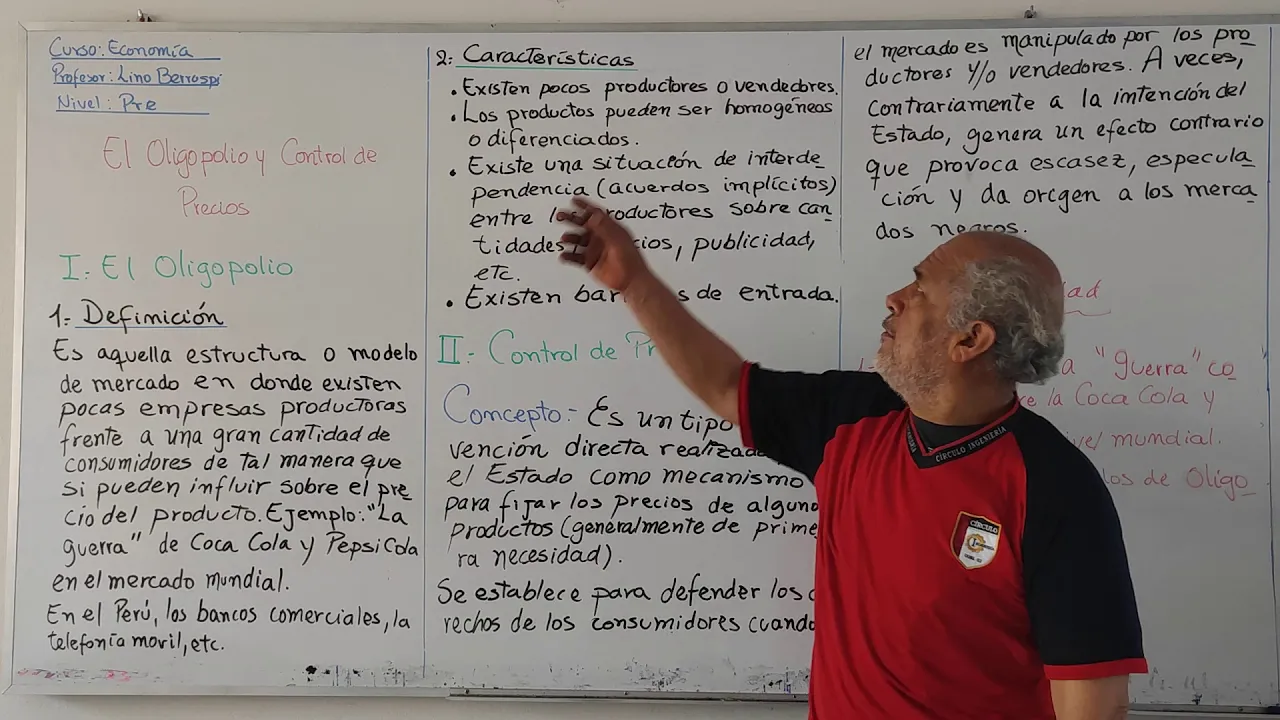 Curso: Economía
Profesor: Lino Berrospi
Nivel: Pre
El Oligopolio y Control de
Precios
I. El Oligopolio
1.- Definición
Es aquella estructura o modelo
de mercado en donde existen
pocas empresas productoras
frente a una gran cantidad de
consumidores de tal manera que
si pueden influir sobre el pre
cio del producto. Ejemplo: "La
guerra" de Coca Cola y PepsiCola
en el mercado mundial.
En el Perú, los bancos comerciales, la
telefonía movil, etc.
2. Características
• Existen pocos productores o vendedores.
• Los productos pueden ser homogéneos
o diferenciados.
• Existe una situación de interde
pendencia (acuerdos implícitos)
entre los productores sobre can
tidades, cios, publicidad,
etc.
• Existen bar s de entrada.
II.- Control de Pr
Concepto.- Es un tipo
vención directa realizada
el Estado como mecanismo
para fijar los precios de alguno
productos (generalmente de prime
ra necesidad).
Se establece para defender los
rechos de los consumidores cuando
el mercado es manipulado por los pro
ductores y/o vendedores. A veces,
contrariamente a la intención del
Estado, genera un efecto contrario
que provoca escasez, especula
ción y da origen a los merca
dos negros.
dad
a "guerra" co
re la Coca Cola y
nivel mundial.
los de Oligo
CÍRCULO INGENIERÍA
CÍRCULO